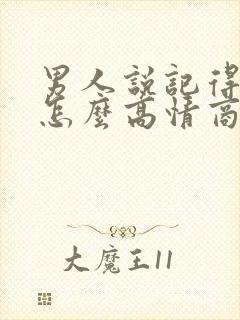 男人説記得
怎麼高情商
大魔王11